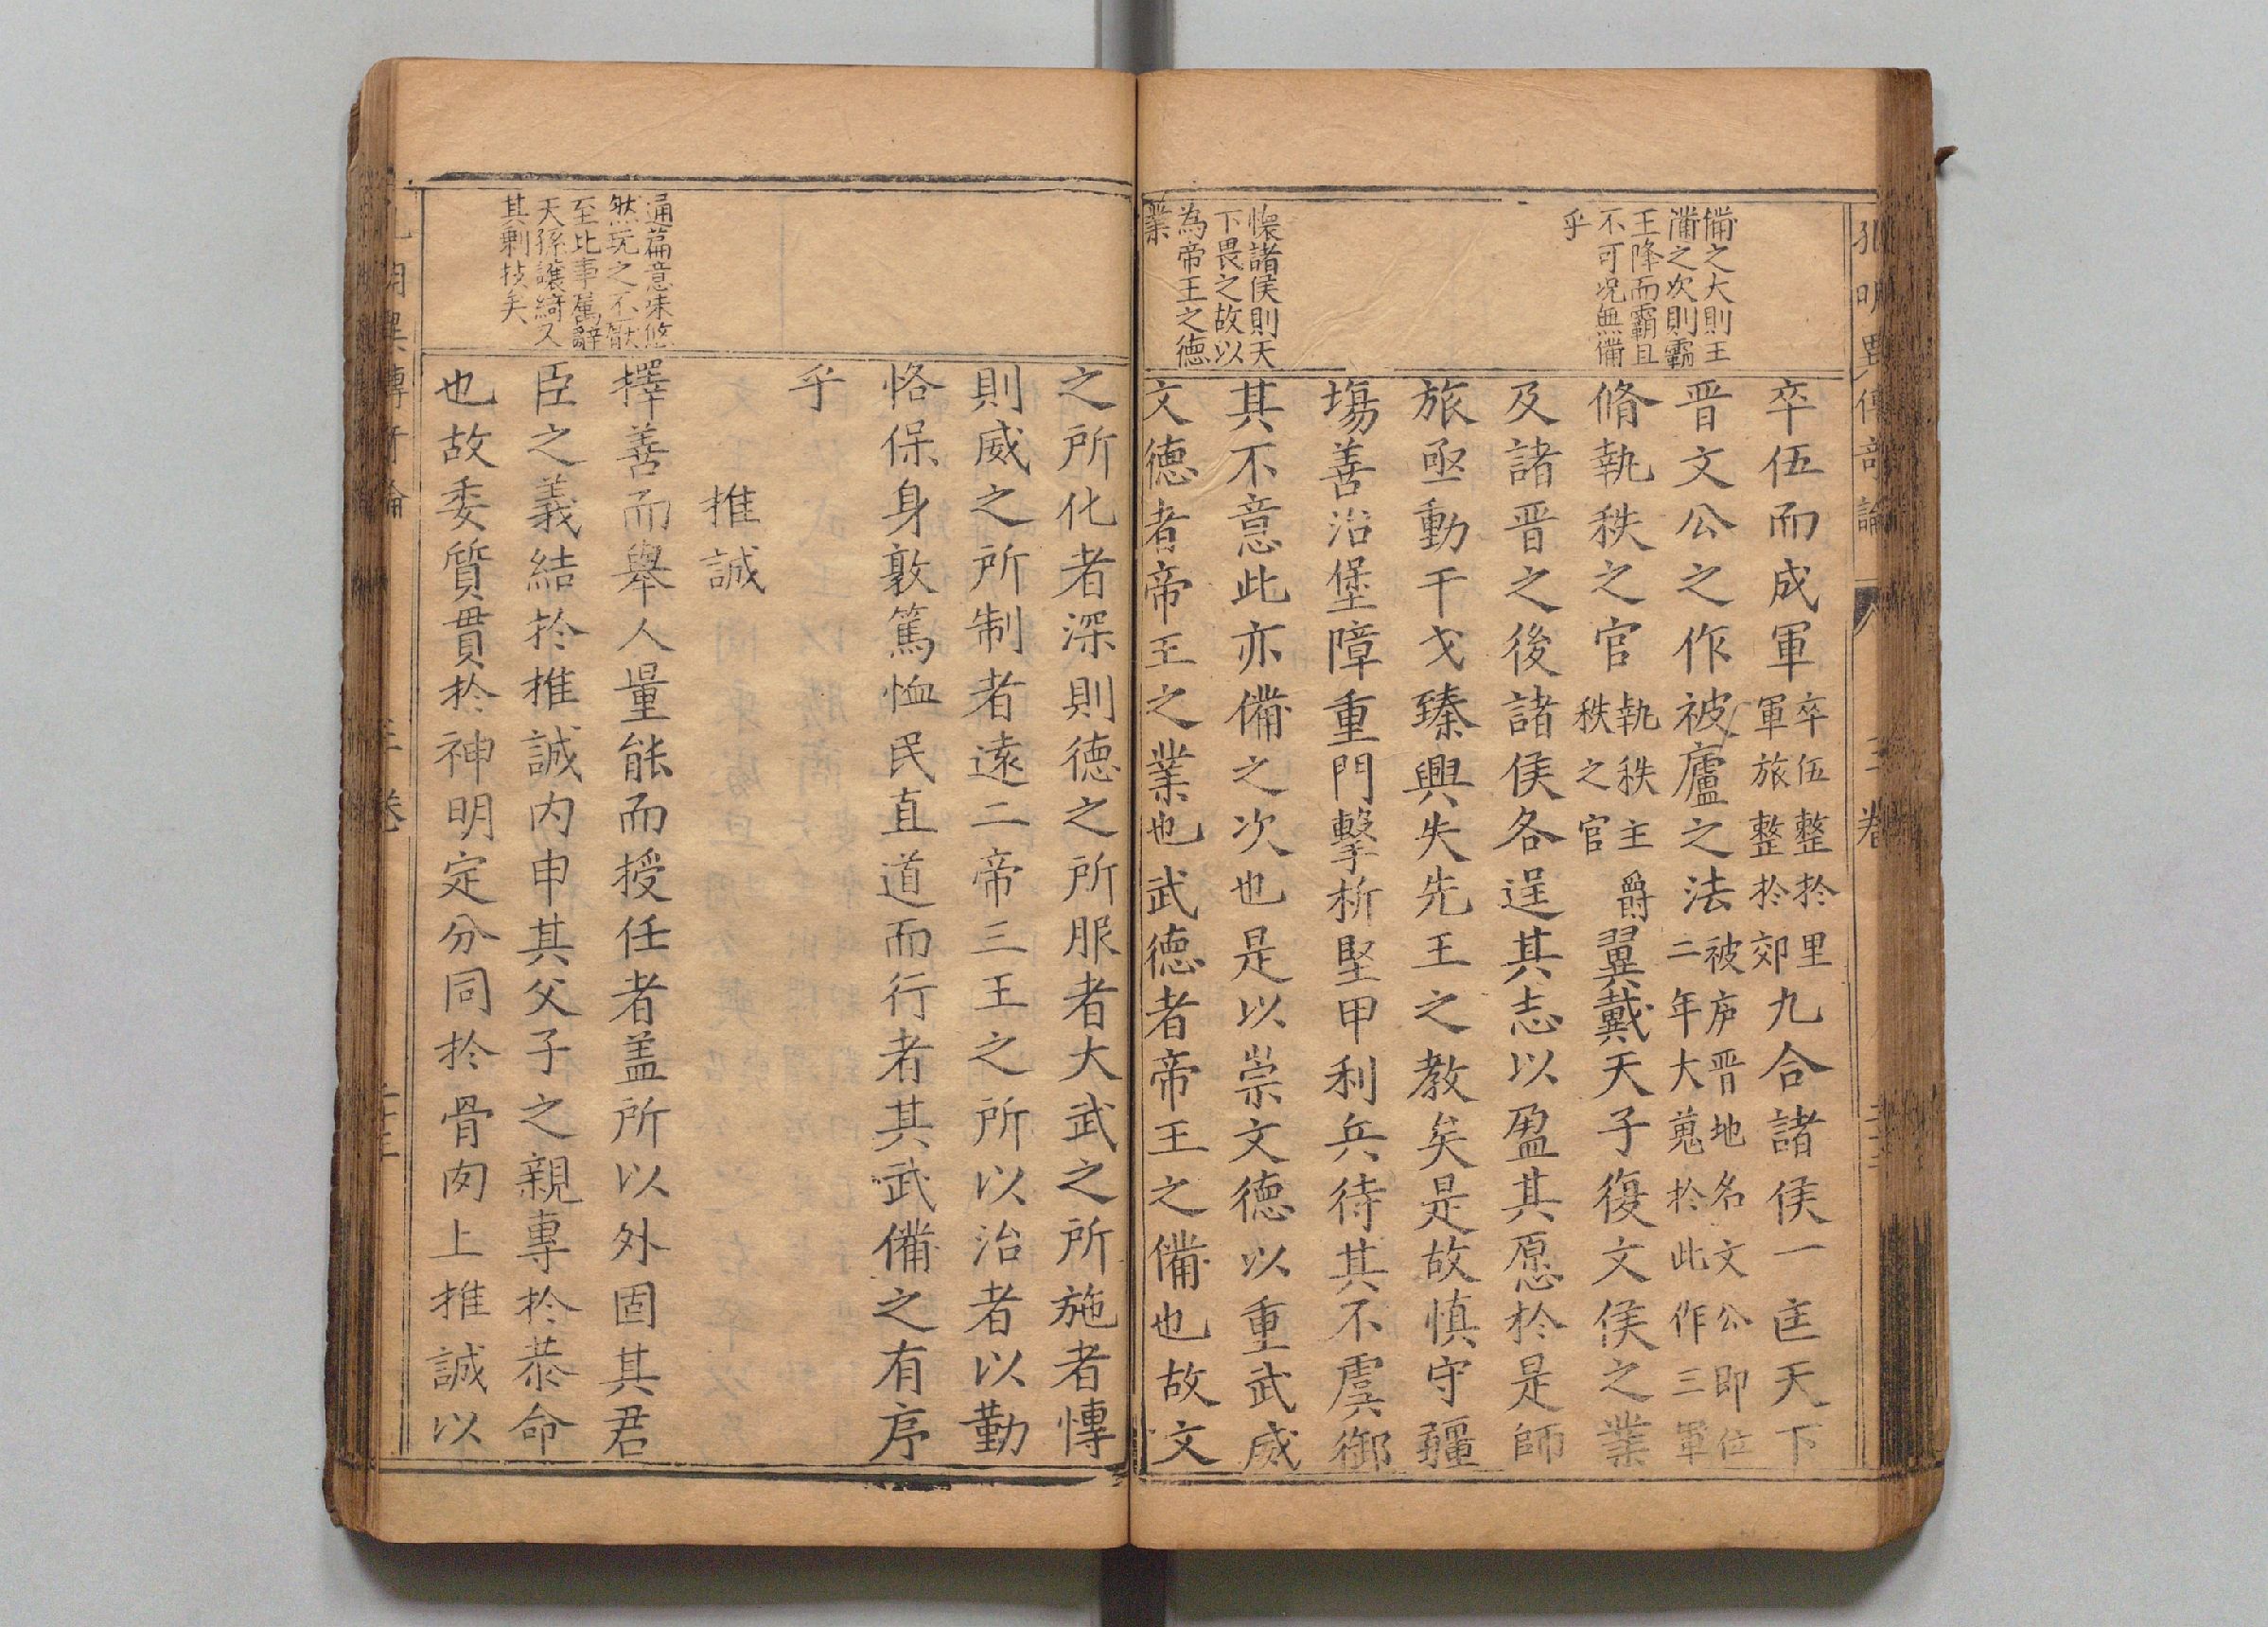 備之大則王
備之次則霸
王降而霸且
不可况無備
乎
懷諸侯則天
下畏之故以
為帝王之德
業
卒伍而成軍卒伍整於里軍旅整於郊九合諸侯一匡天下
晋文公之作被廬之法被庐晋地名文公即位二年大蒐於此作三軍
脩執秩之官執秩主爵秩之官翼戴天子復文侯之業
及諸晋之後諸侯各逞其志以盈其愿於是師
旅亟動干戈臻興失先王之教矣是故慎守疆
塲善治堡障重門擊析堅甲利兵待其不虞御
其不意此亦備之次也是以崇文德以重武威
文德者帝王之業也武德者帝王之備也故文
通篇意味悠
然玩之不厭
至比事属辭
天孫讓綺又
其剩技矣
之所化者深則德之所服者大武之所施者慱
則威之所制者遠二帝三王之所以治者以勤
恪保身敦篤恤民直道而行者其武備之有序
乎
推誠
擇善而舉人量能而授任者盖所以外固其君
臣之義結於推誠内申其父子之親專於恭命
也故委質貫於神明定分同於骨肉上推誠以